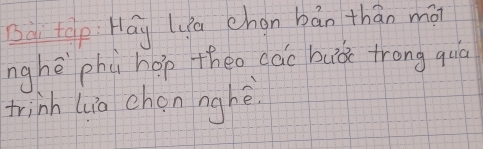 Bài tập: Hãy lựa chọn bản thân một
nghề phù hợp theo các bước trong quá
trình lựa chọn nghề.